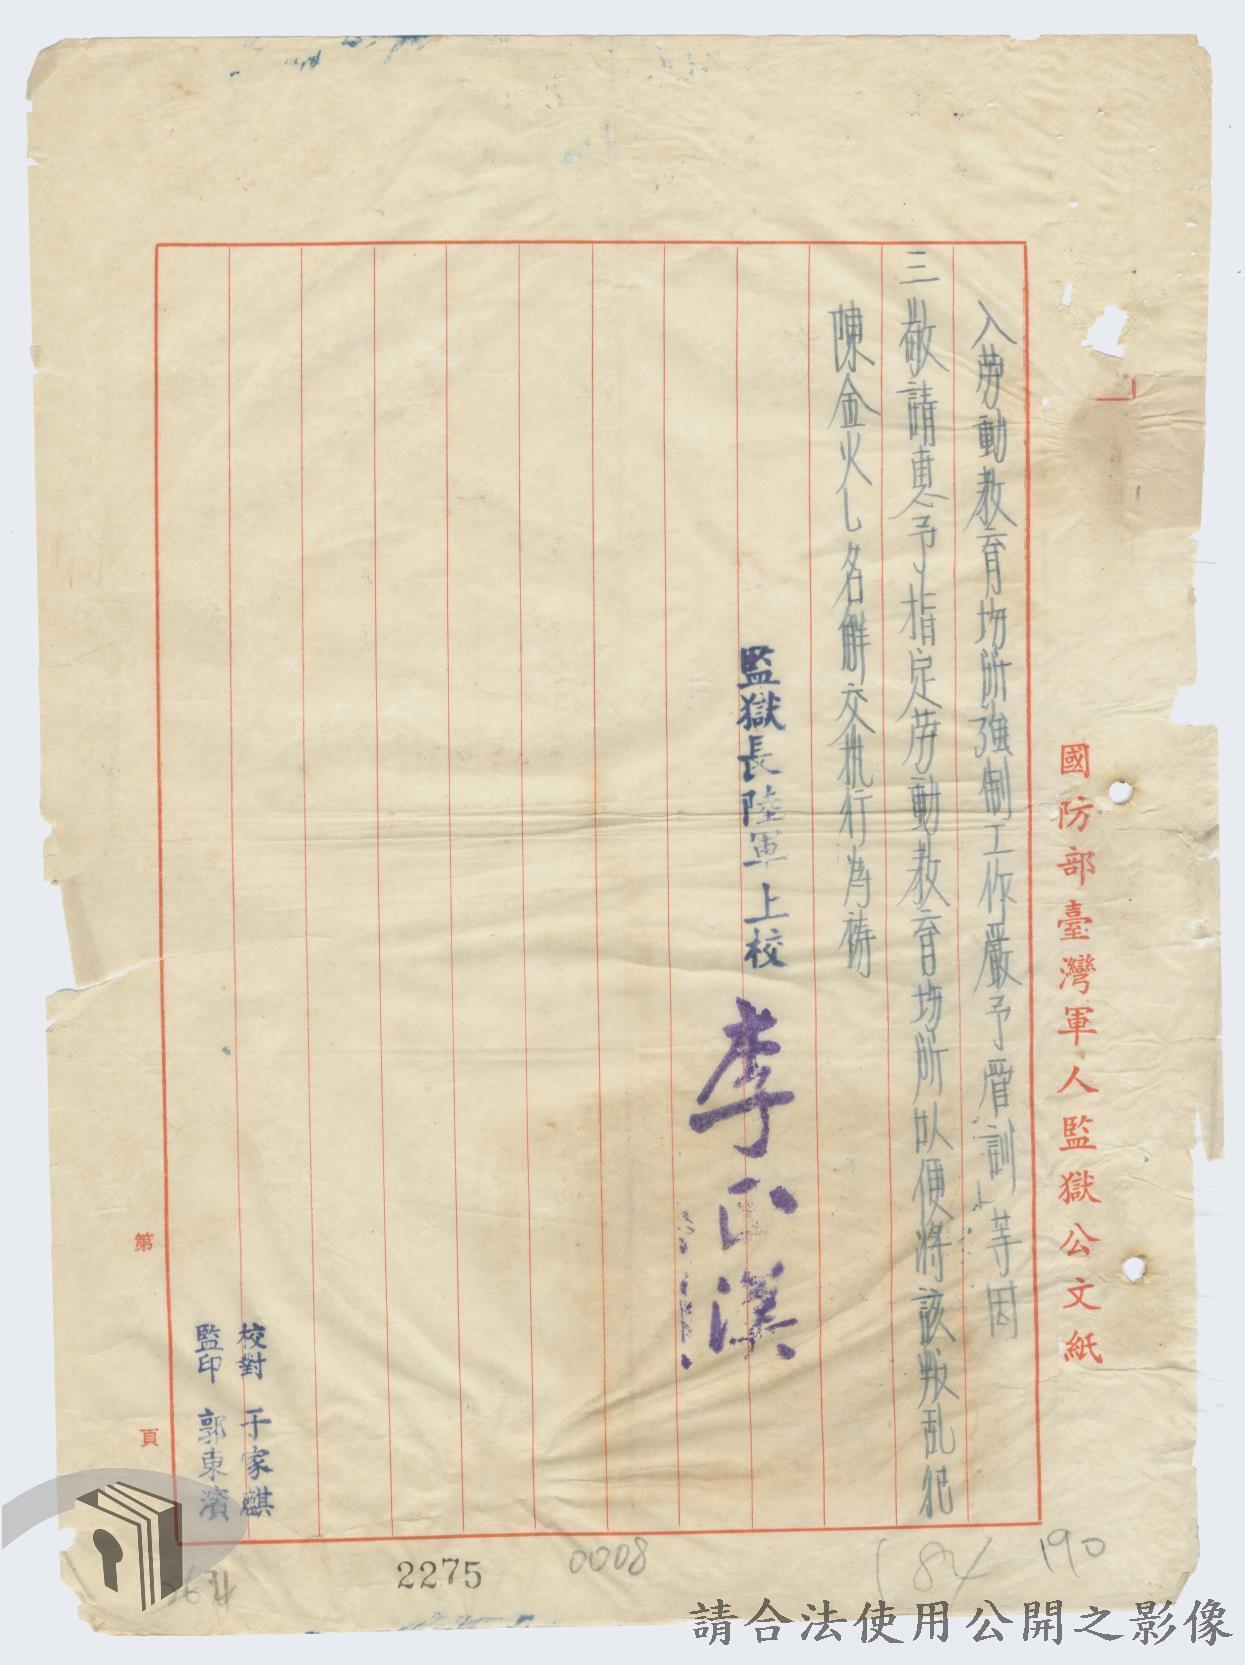 國防部臺灣軍人監獄公文紙
入劳動教育場所強制工作嚴予管訓」等因
三敬請惠予指定劳動教育場所以便將該叛乱犯
陳金火乙名解交執行為禱
監獄長陸軍上校
李正漢
校對 于家麒
監印 郭東濱
第
頁
2275
0008
184
190
請合法使用公開之影像